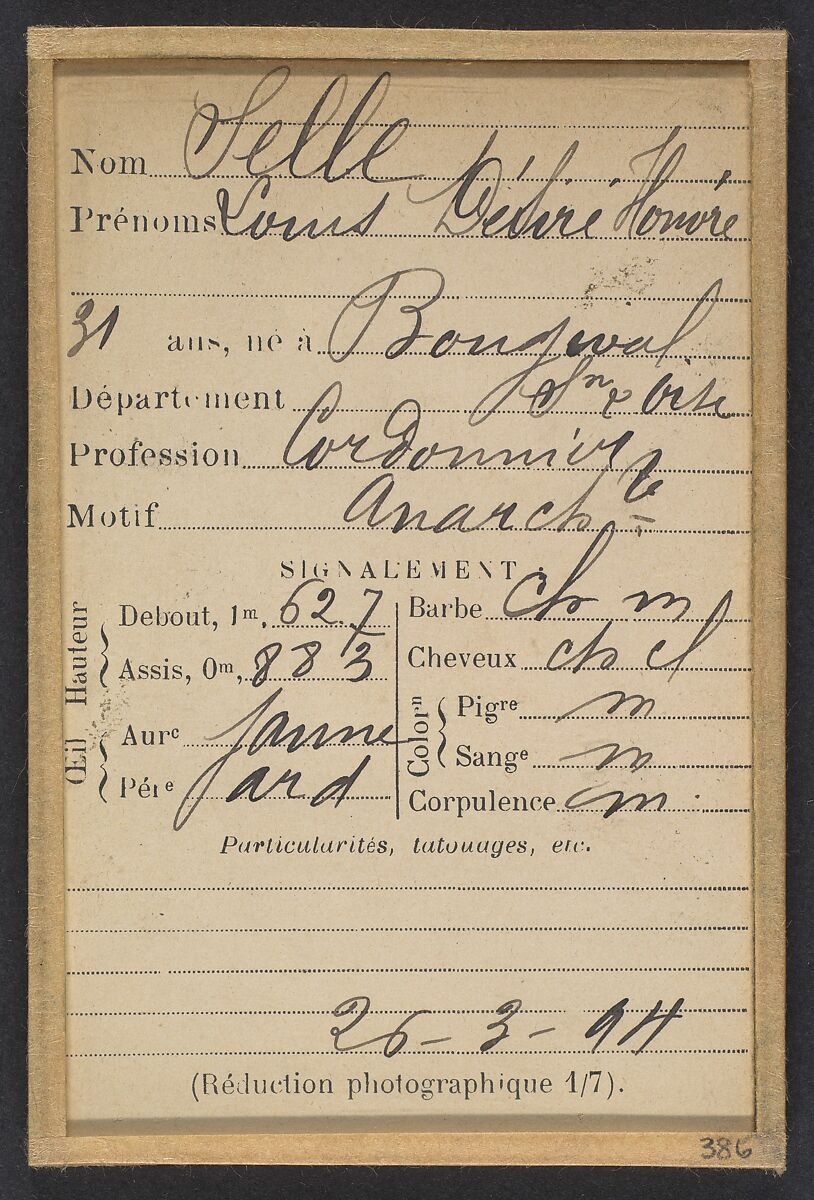 Nom Selle
Prénoms Louis Désiré Honoré
31 ans, né à Bougival
Département Sne & Oise
Profession Cordonnier
Motif Anarchte
SIGNALEMENT
Hauteur
Debout, 1m, 62.7
Assis, 0m, 88 3
Œil
Aurc jaune
Pére ard
Barbe ch m
Cheveux ch cl
Colorn
Pigre m
Sange m
Corpulence m
Particularités, tatouages, etc.
26-3-94
(Réduction photographique 1/7).
386